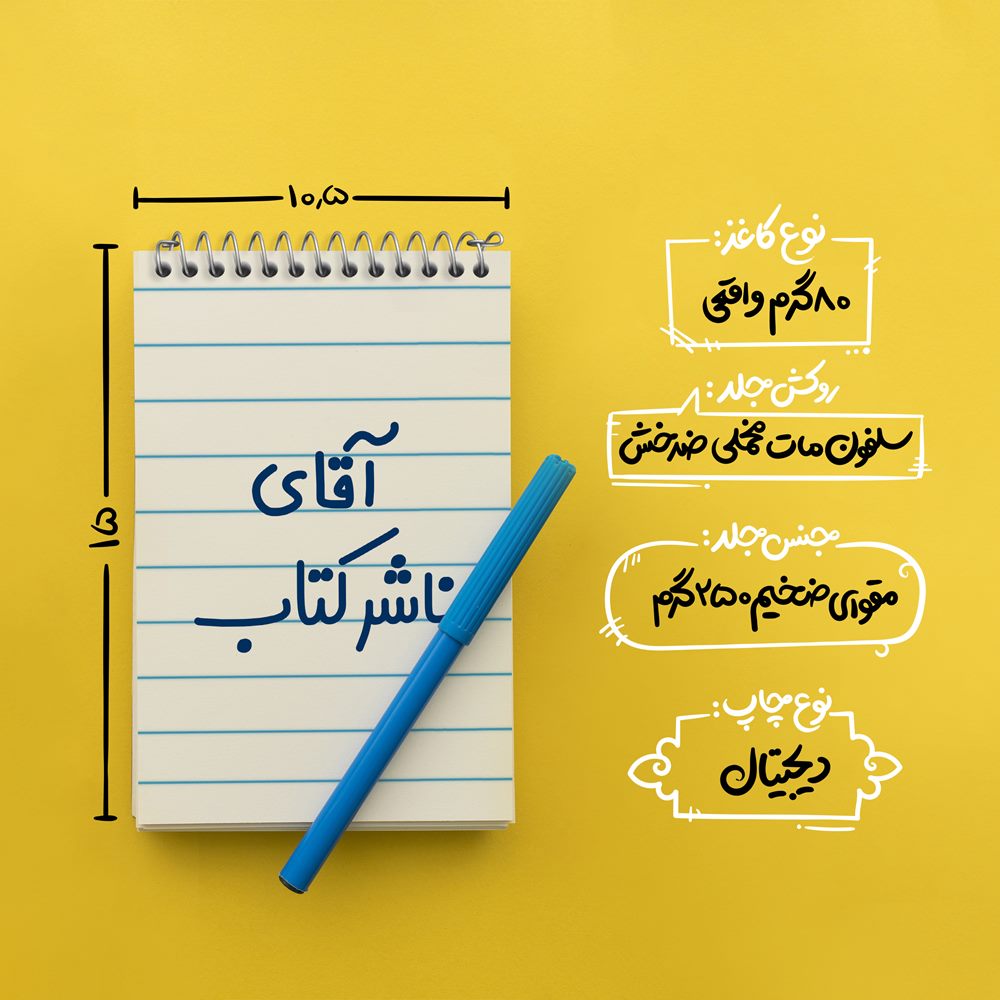 ۱۰٫۵
۱۵
آقای
ناشر کتاب
نوع کاغذ:
۸۰ گرم واقعی
روکش جلد:
سلفون مات مخملی ضدخش
جنس جلد:
مقوای ضخیم ۲۵۰ گرم
نوع چاپ:
دیجیتال